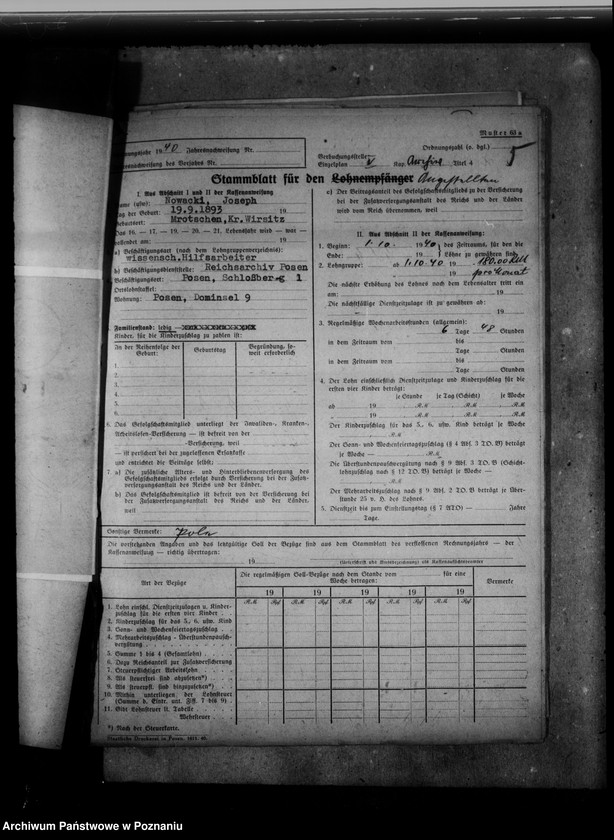 Muster 63a
Rechnungsjahr 1940 Jahresnachweisung Nr.
Jahresnachweisung des Vorjahrs Nr.
Ordnungszahl (o. dgl.)
5
Verbuchungsstelle:
Einzelplan V Kap. Titel 4
Stammblatt für den Lohnempfänger Angestellten
I. Aus Abschnitt I und II der Kassenanweisung
Name (ufw): Nowacki, Joseph
Tag der Geburt: 19.9.1893 19
Geburtsort: Mrotschen, Kr. Wirsitz
Das 16. — 17. — 19. — 20. — 21. Lebensjahr wird — war —
vollendet am: 19
a) Beschäftigungsart (nach dem Lohngruppenverzeichnis):
wissensch. Hilfsarbeiter
b) Beschäftigungsdienststelle: Reichsarchiv Posen
Beschäftigungsort: Posen, Schloßberg 1
Ortslohnstaffel:
Wohnung: Posen, Dominsel 9
Familienstand: ledig —
Kinder, für die Kinderzuschlag zu zahlen ist:
In der Reihenfolge der Geburt: Geburtstag Begründung, soweit erforderlich
1.
2.
3.
4.
5.
6.
6. Das Gefolgschaftsmitglied unterliegt der Invaliden-, Kranken-,
Arbeitslosen-Versicherung — ist befreit von der
-Versicherung, weil
— ist versichert bei der zugelassenen Ersatzkasse
und entrichtet die Beiträge selbst:
7. a) Die zusätzliche Alters- und Hinterbliebenenversorgung des
Gefolgschaftsmitglieds erfolgt durch Versicherung bei der Zusatzversorgungsanstalt des Reichs und der Länder.
b) Das Gefolgschaftsmitglied ist befreit von der Versicherung bei
der Zusatzversorgungsanstalt des Reichs und der Länder,
weil
c) Der Beitragsanteil des Gefolgschaftsmitglieds zu der Versicherung
bei der Zusatzversorgungsanstalt des Reichs und der Länder
wird vom Reich übernommen, weil
II. Aus Abschnitt II der Kassenanweisung:
1. Beginn: 1.10. 1940 des Zeitraums, für den die
Ende: 19 Löhne zu gewähren sind.
2. Lohngruppe: ab 1.10.40 19 180.00 RM
19 pro Monat
Die nächste Erhöhung des Lohnes nach dem Lebensalter tritt ein
am: 19
Die nächstfällige Dienstzeitzulage ist zu gewähren ab:
19
3. Regelmäßige Wochenarbeitsstunden (allgemein):
6 Tage 48 Stunden
in dem Zeitraum vom bis
Tage Stunden
in dem Zeitraum vom bis
Tage Stunden
4. Der Lohn einschließlich Dienstzeitzulage und Kinderzuschlag für die
ersten vier Kinder beträgt:
je Stunde je Tag (Schicht) je Woche
ab 19 RM RM RM
19 RM RM RM
Der Kinderzuschlag für das 5., 6. usw. Kind beträgt je Woche
RM
Der Sonn- und Wochenfeiertagszuschlag (§ 4 Abs. 3 TO. B) beträgt
je Woche — RM
Die Überstundenpauschvergütung nach § 9 Abs. 3 TO. B (Schichtlohnzuschlag nach § 12 TO. B) beträgt je Woche —
RM
Der Mehrarbeitszuschlag nach § 9 Abs. 2 TO. B beträgt je Überstunde 25 v. H. des Lohnes.
5. Dienstzeit bis zum Einstellungstag (§ 7 ATO) — Jahre
Tage.
Sonstige Vermerke: Pole
Die vorstehenden Angaben und das letztgültige Soll der Bezüge sind aus dem Stammblatt des verflossenen Rechnungsjahres — der
Kassenanweisung — richtig übertragen:
19
Art der Bezüge
Die regelmäßigen Soll-Bezüge nach dem Stande vom für eine
Woche betragen:
Vermerke
19 19 19 19 19
RM Rpf RM Rpf RM Rpf RM Rpf RM Rpf
1. Lohn einschl. Dienstzeitzulagen u. Kinderzuschlag für die ersten vier Kinder
2. Kinderzuschlag für das 5., 6. usw. Kind
3. Sonn- und Wochenfeiertagszuschlag
4. Mehrarbeitszuschlag - Überstundenpauschvergütung
5. Summe 1 bis 4 (Gesamtlohn)
6. Dazu Reichsanteil zur Zusatzversicherung
7. Steuerpflichtiger Arbeitslohn
8. Als steuerfrei sind abzusetzen*)
9. Als steuerpfl. sind hinzuzusetzen*)
10. Mithin unterliegen der Lohnsteuer
(Summe d. Eintr. unt. Ziff. 7 bis 9)
11. Gibt Lohnsteuer lt. Tabelle
Wehrsteuer
*) Nach der Steuerkarte.
Archiwum Państwowe w Poznaniu